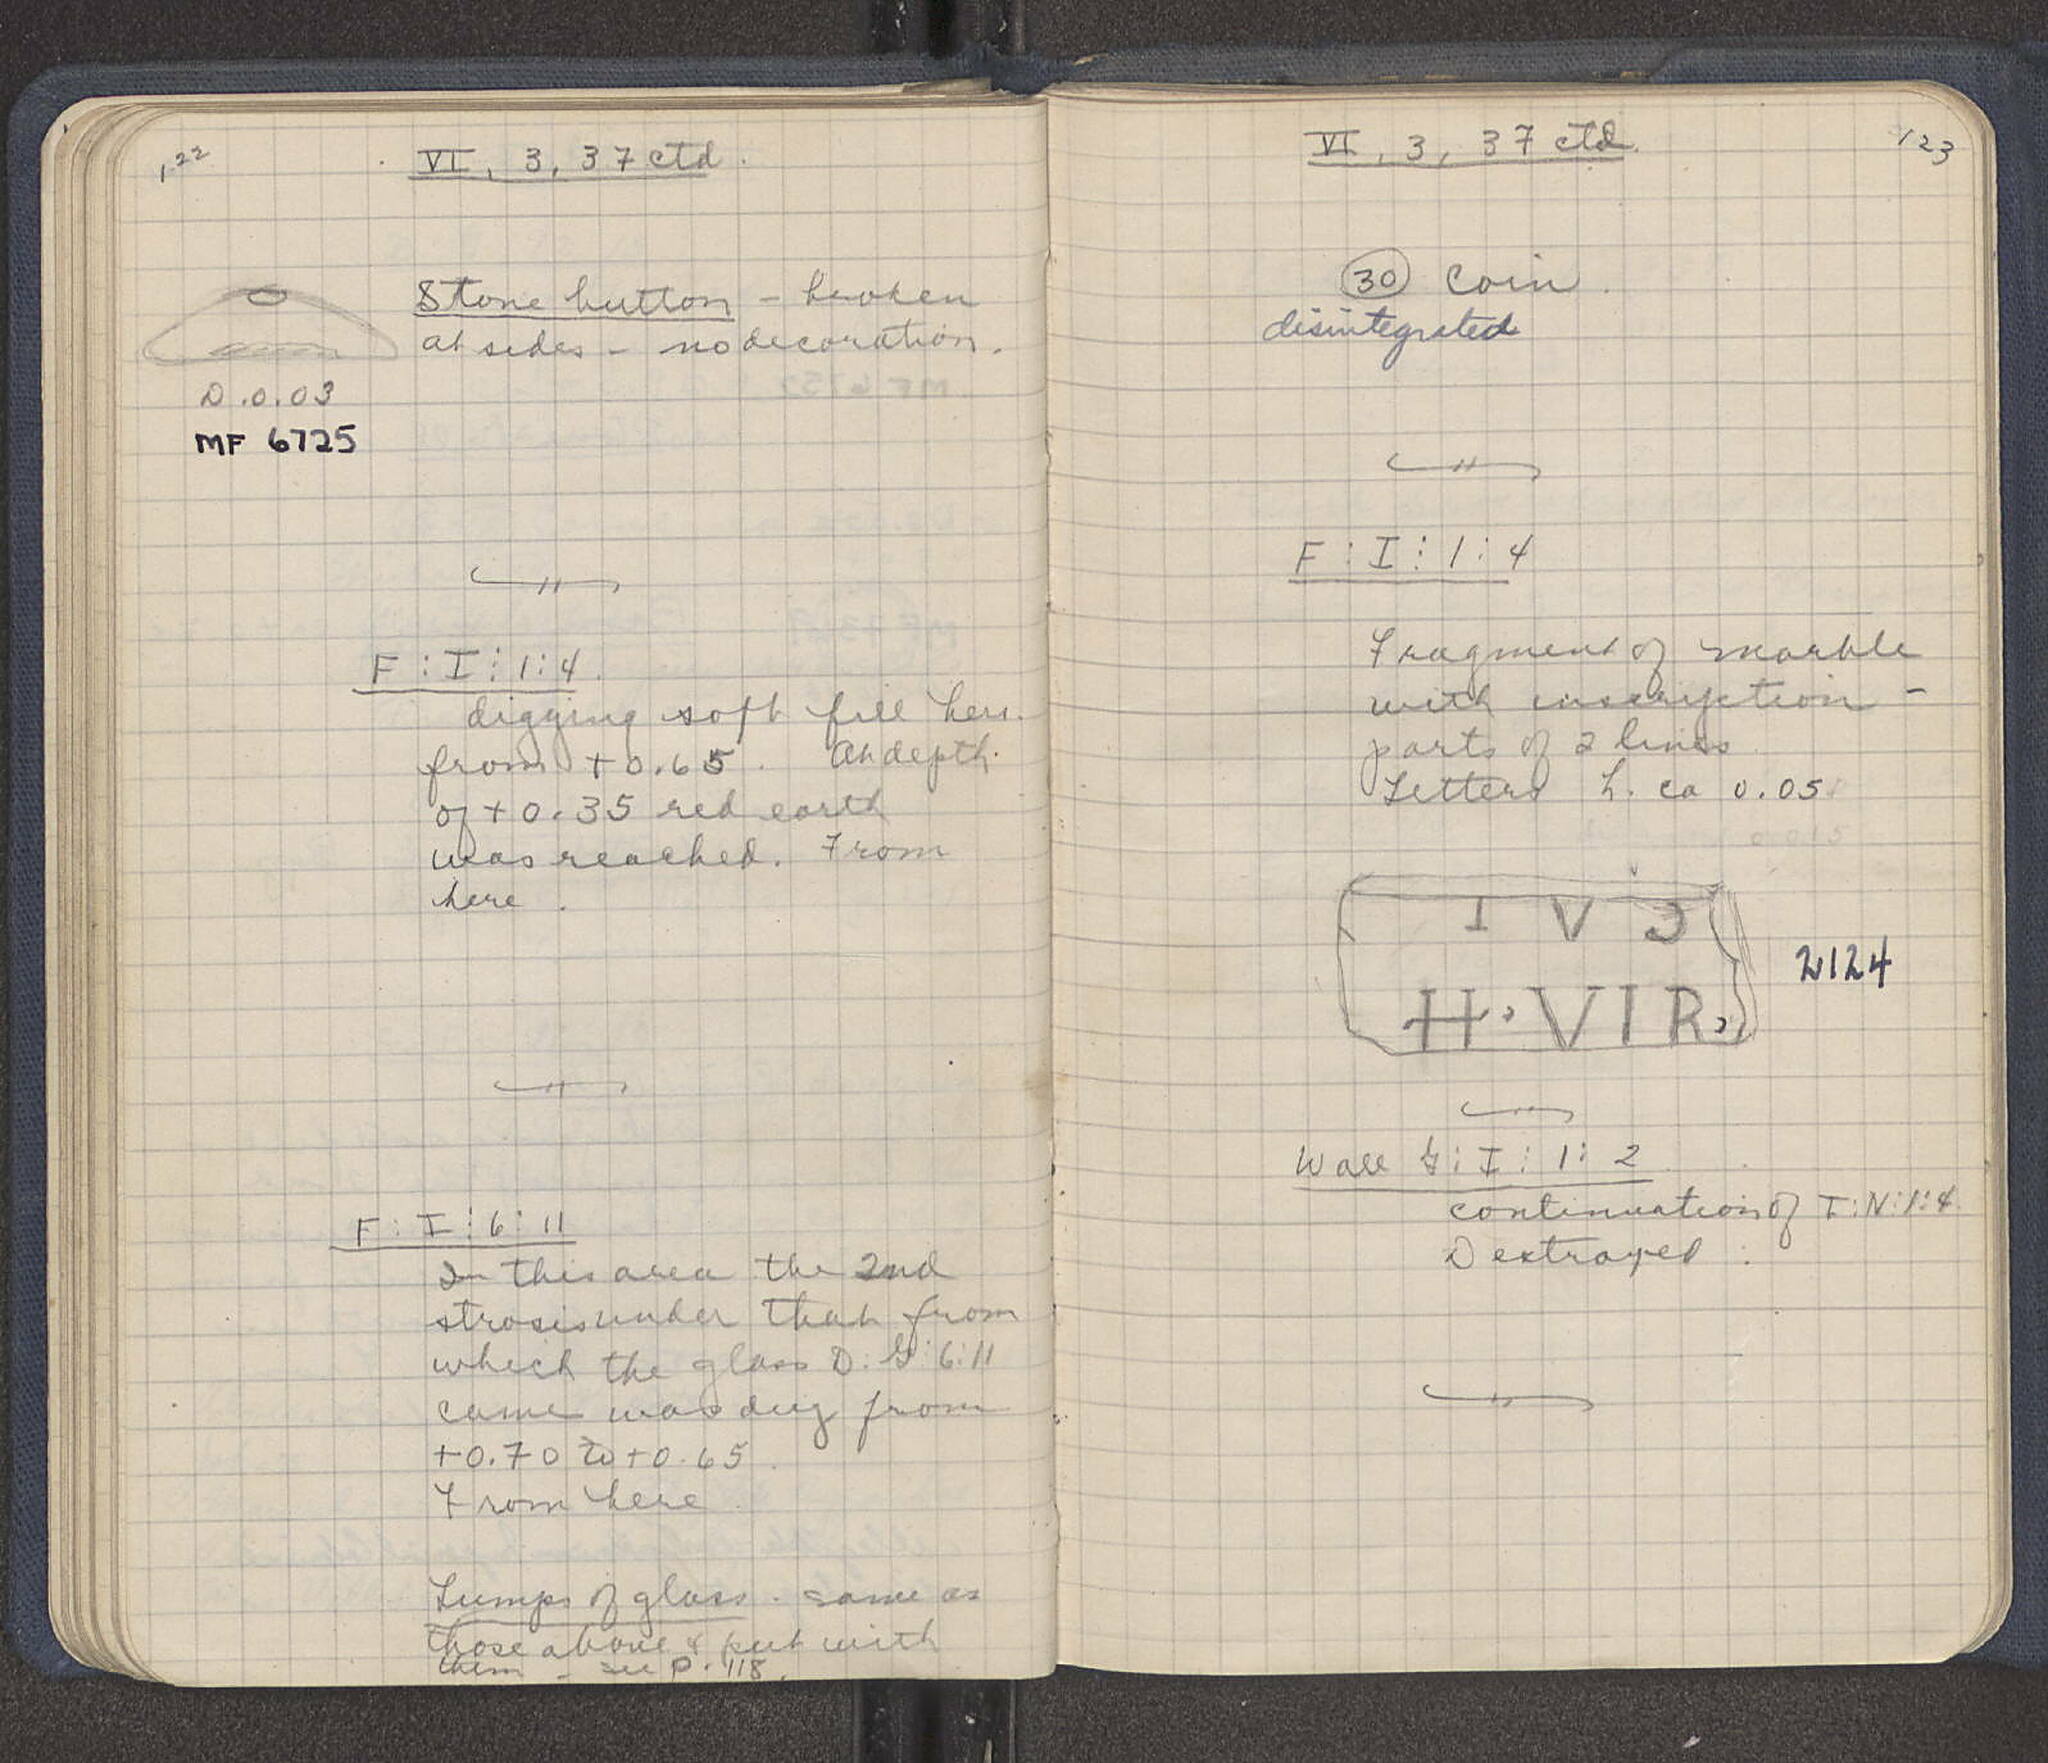 122
VI, 3, 37 ctd.
Stone button - broken
at sides - no decoration.
D. 0.03
MF 6725
F : I : 1 : 4.
digging soft fill here
from +0.65. At depth
of +0.35 red earth
was reached. From
here.
F : I : 6 : 11
In this area the 2nd
strosis under that from
which the glass D: G: 6:11
came was dug from
+0.70 to +0.65.
From here
Lumps of glass. same as
those above & put with
them - see p. 118.
VI, 3, 37 ctd.
123
30 Coin.
disintegrated
F : I : 1 : 4
Fragment of marble
with inscription -
parts of 2 lines
Letters h. ca 0.05
I V
H · VIR ·
2124
Wall G : I : 1 : 2
continuation of I:N:1:4.
Destroyed.